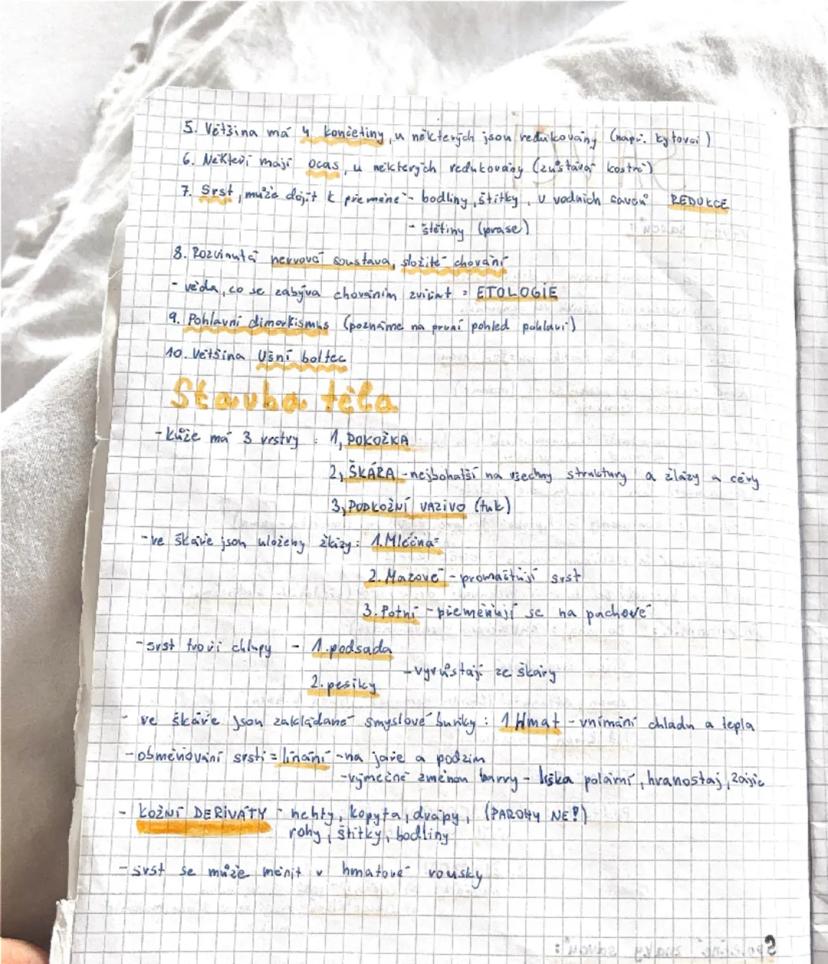 5. Většina má 4 končetiny, u některých jsou redukovány (např. kytovci)
6. Někteří mají ocas, u některých redukovány (zůstává kostrč)
7. Srst, může dojít k přeměně - bodliny, štítky, u vodních savců REDUKCE
- štětiny (prase)
8. Rozvinutá nervová soustava, složité chování
- věda, co se zabývá chováním zvířat = ETOLOGIE
9. Pohlavní dimorkismus (poznáme na první pohled pohlaví)
10. Většina Ušní boltec
Stavba těla
- kůže má 3 vrstvy : 1, POKOŽKA
2, ŠKÁRA - nejbohatší na všechny struktury a žlázy a cévy
3, PODKOŽNÍ VAZIVO (tuk)
- ve škáře jsou uloženy žlázy: 1. Mléčné
2. Mazové - promašťují srst
3. Potní - přeměňují se na pachové
- srst tvoří chlupy - 1. podsada
2. pesíky - vyrůstají ze škáry
- ve škáře jsou zakládané smyslové buňky : 1 Hmat - vnímání chladu a tepla
- obměňování srsti = línání - na jaře a podzim
- výjmečně změnou barvy - liška polární, hranostaj, zajíc
- KOŽNÍ DERIVÁTY - nehty, kopyta, drápy, (PAROHY NE!)
rohy, štítky, bodliny
- srst se může měnit v hmatové vousky